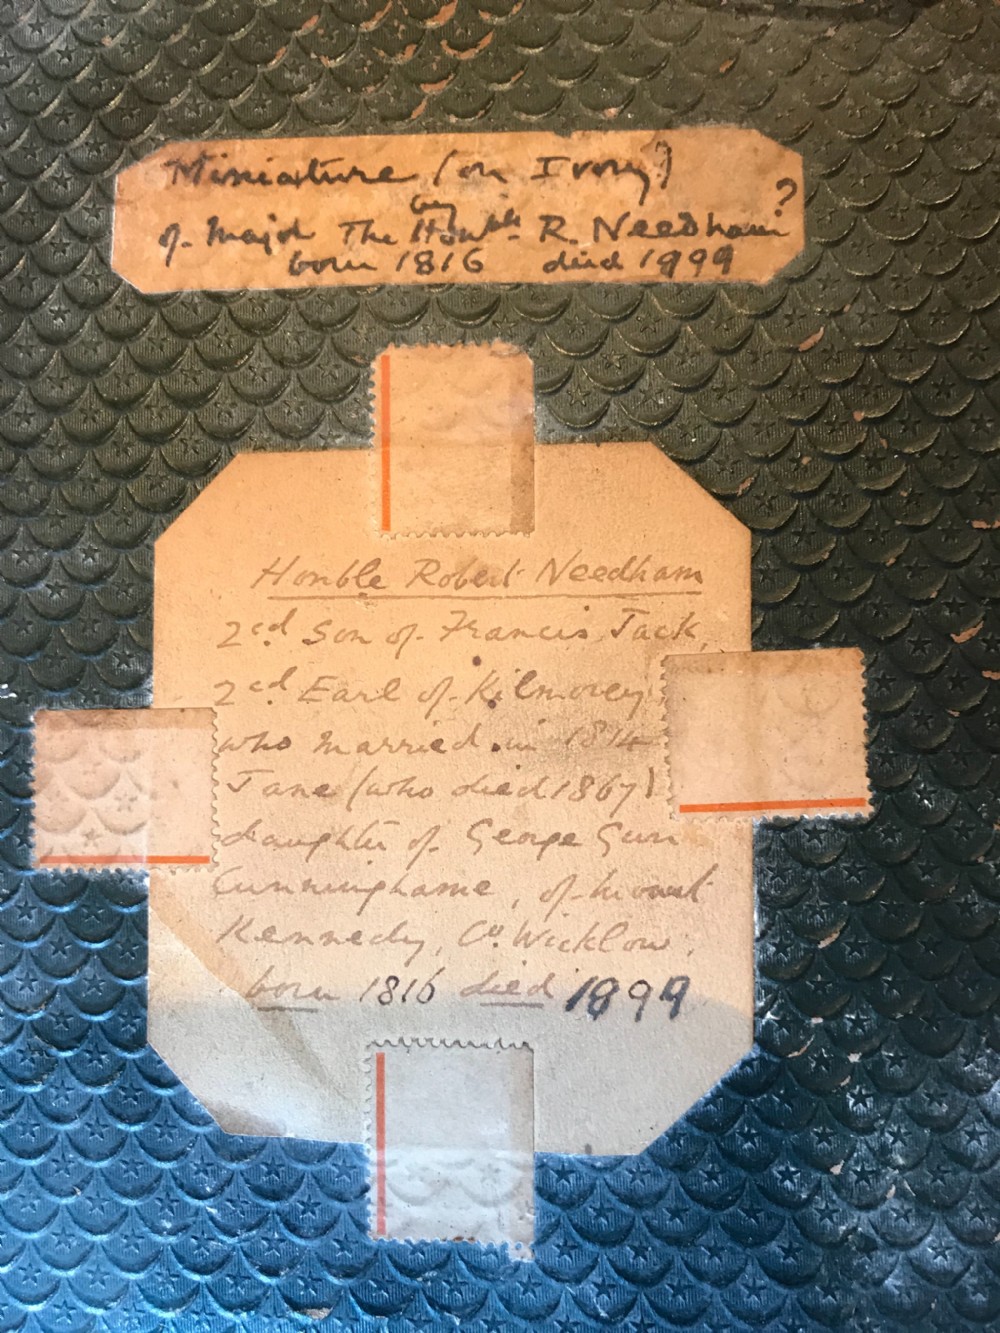 Miniature (on Ivory?)
by ?
of Major The Honble. R. Needham
born 1816 died 1899
Honble Robert Needham
2nd Son of Francis Jack,
2nd Earl of Kilmorey
who married in 1814
Jane (who died 1867)
daughter of George Gun
Cunninghame, of Mount
Kennedy, Co. Wicklow,
born 1816 died 1899